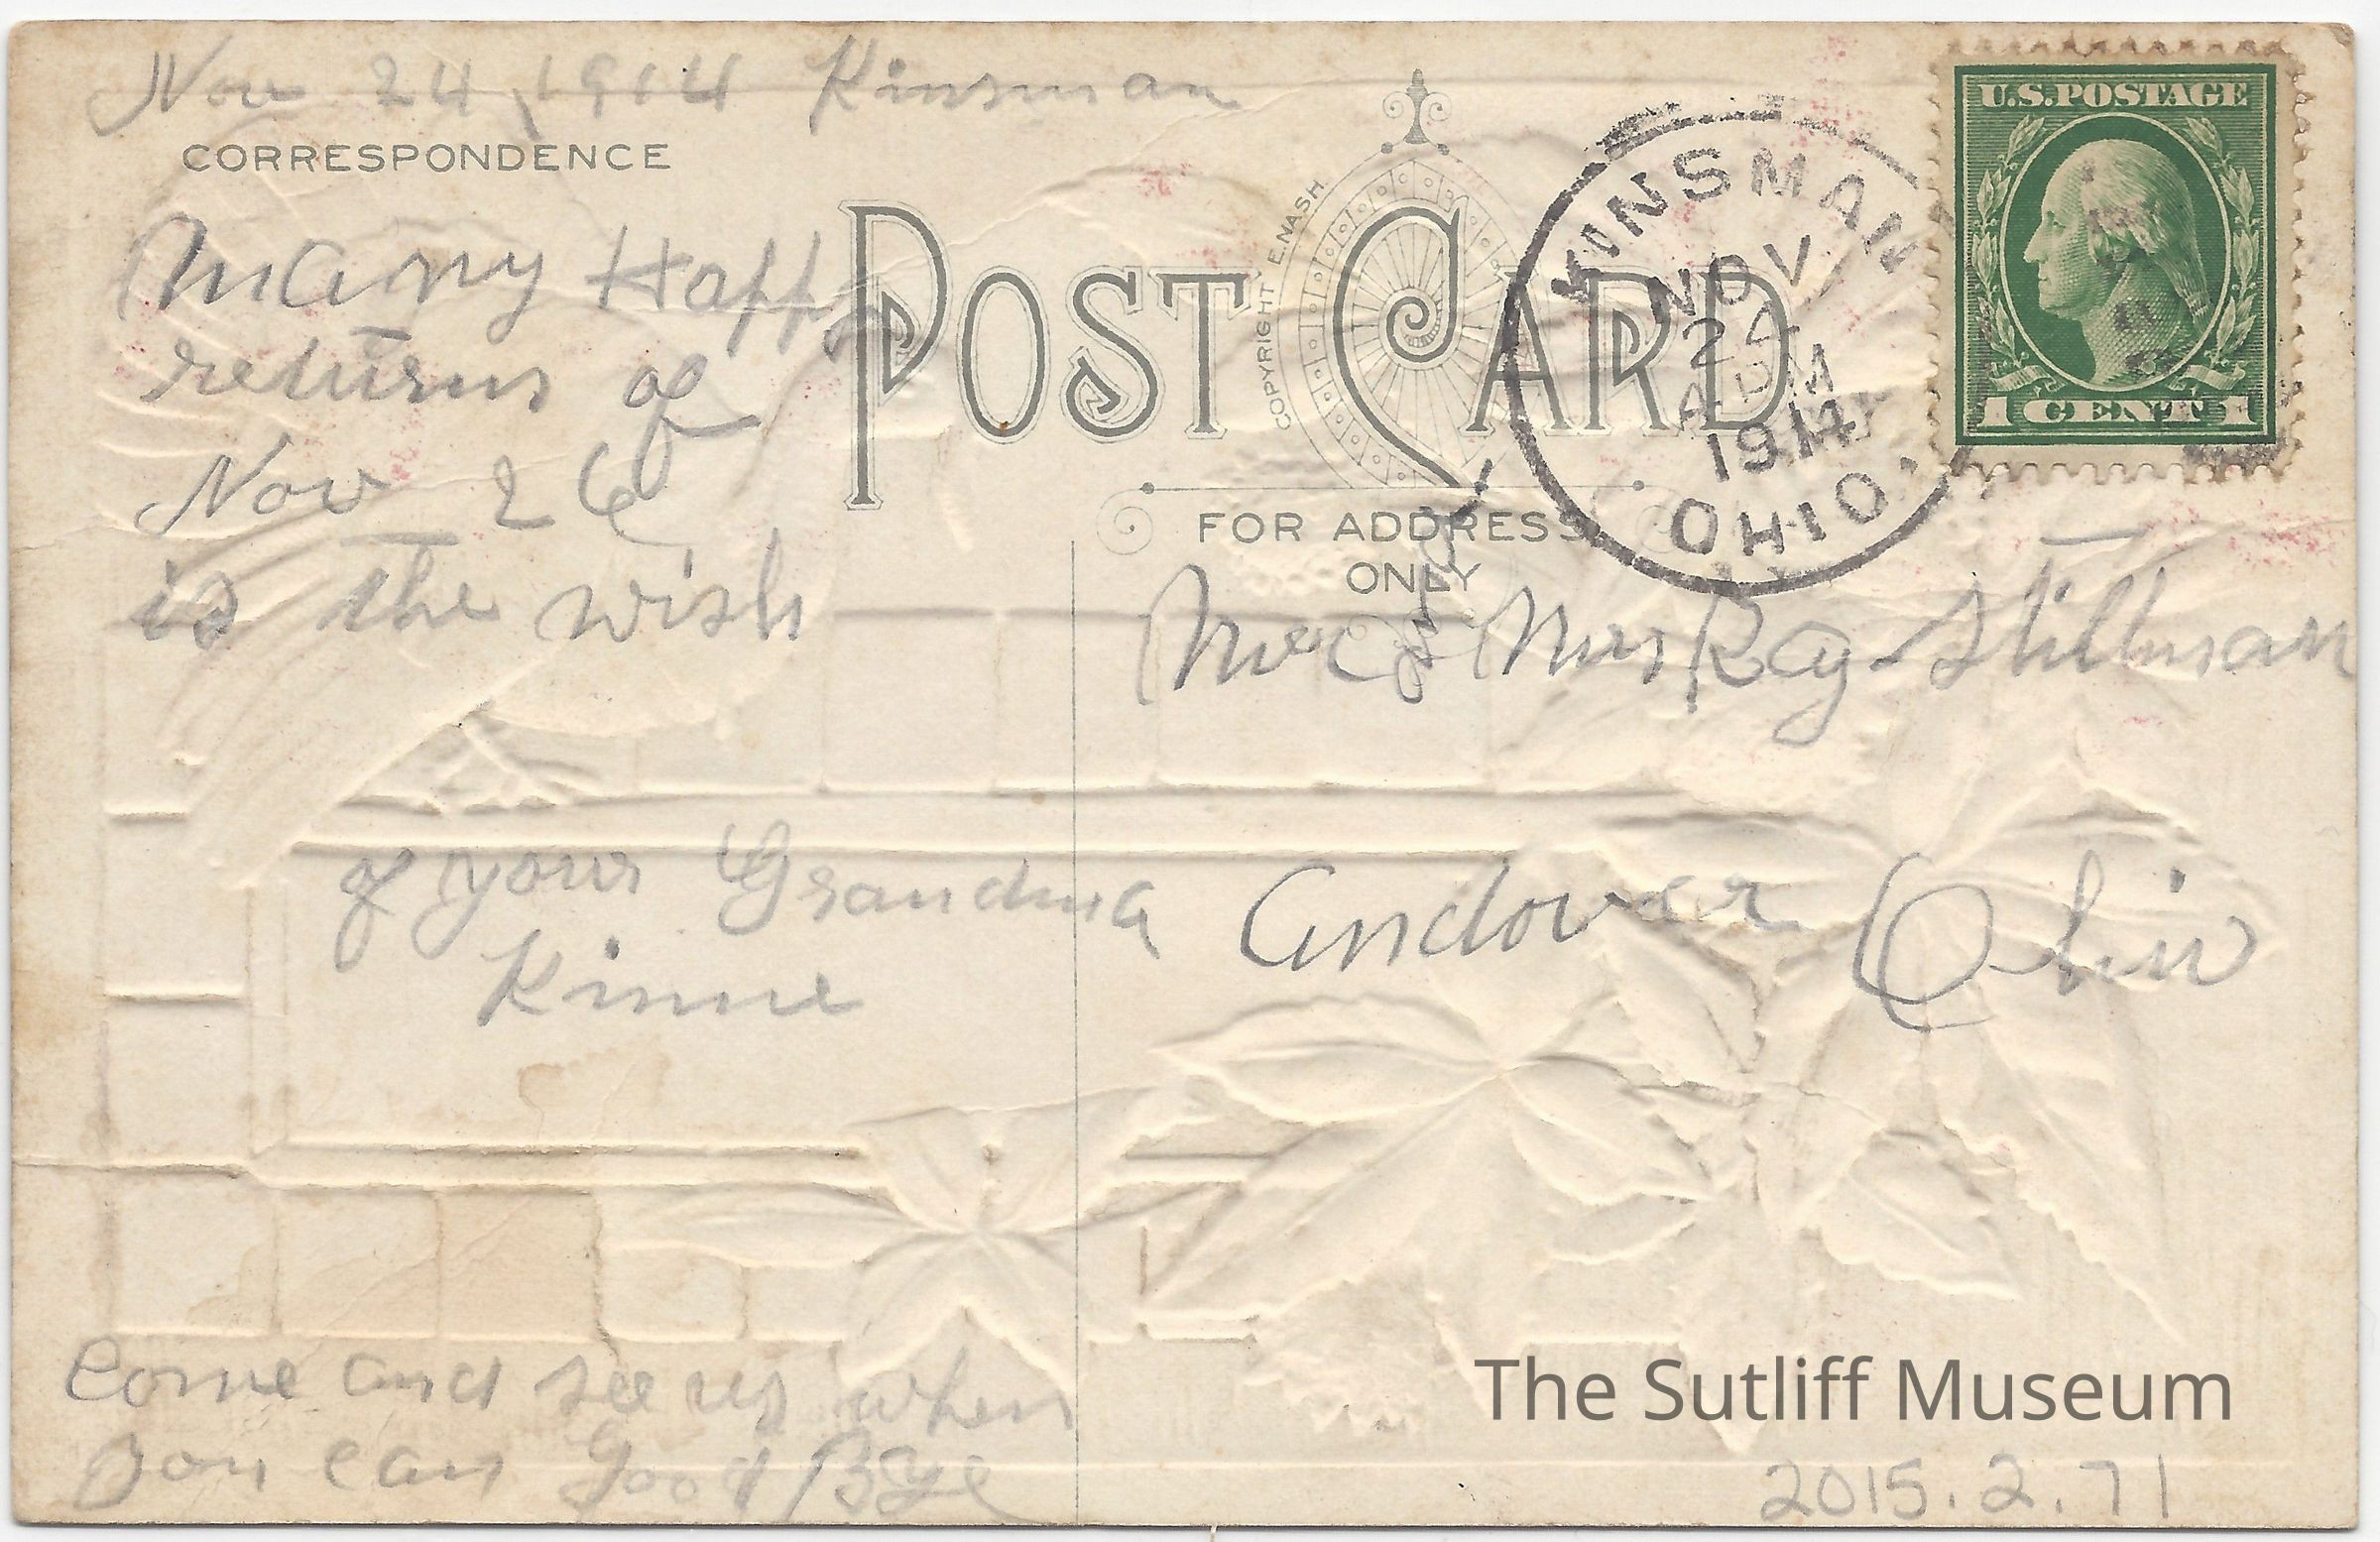 Nov 24, 1914 Kinsman
CORRESPONDENCE
Many Happy
returns of
Nov 26
is the wish
of your Grandma
Kinne
Come and see us when
you can Good Bye
POST CARD
COPYRIGHT E. NASH.
FOR ADDRESS
ONLY
KINSMAN
NOV
24
1914
OHIO.
U.S. POSTAGE
1 CENT 1
Mr & Mrs Ray Stillman
Andover Ohio
The Sutliff Museum
2015.2.71